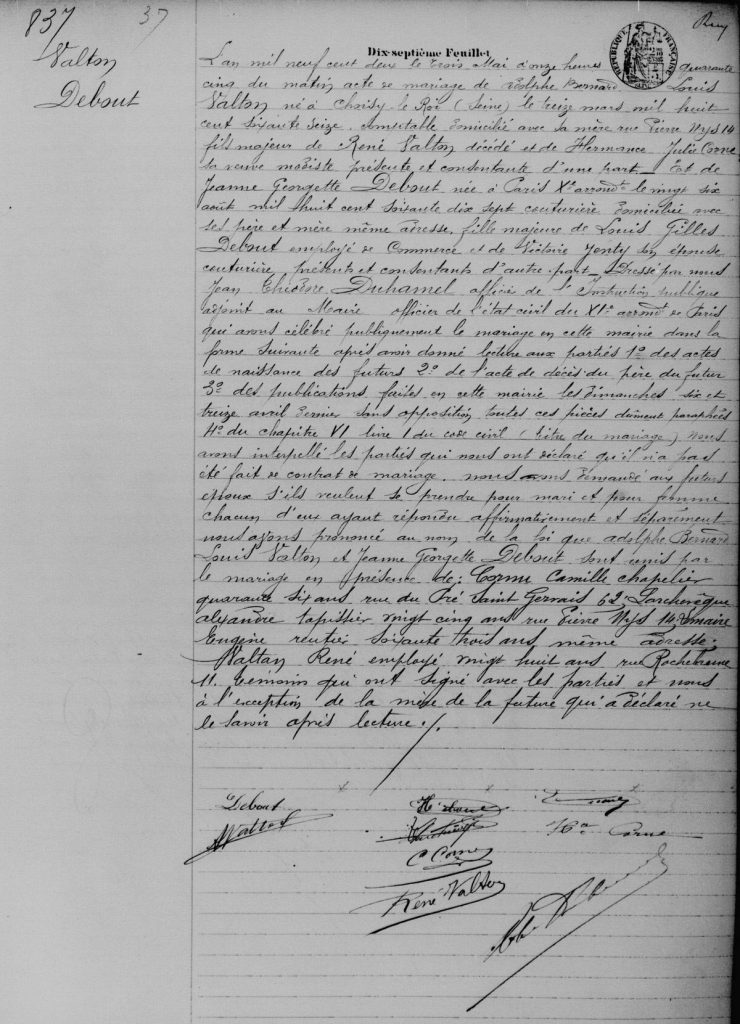 837
37
Valton
Debout
Dix-septième Feuillet
RÉPUBLIQUE FRANÇAISE
L'an mil neuf cent deux le trois Mai à onze heures quarante
cinq du matin acte de mariage de Adolphe Bernard Louis
Valton né à Choisy le Roi (Seine) le treize mars mil huit
cent soixante seize, comptable domicilié avec sa mère rue Pierre Nys 14
fils majeur de René Valton décédé et de Hermance Julie Corne
sa veuve modiste présente et consentante d'une part _ Et de
Jeanne Georgette Debout née à Paris Xe arrondt le vingt six
août mil huit cent soixante dix sept couturière domiciliée avec
ses père et mère même adresse, fille majeure de Louis Gilles
Debout employé de Commerce et de Victoire Jenty son épouse
couturière, présents et consentants d'autre part _ Dressé par nous
Jean Théodore Duhamel officier de l'Instruction publique
adjoint au Maire officier de l'état civil du XIe arrondt de Paris
qui avons célébré publiquement le mariage en cette mairie dans la
forme suivante après avoir donné lecture aux parties 1° des actes
de naissance des futurs 2° de l'acte de décès du père du futur
3° des publications faites en cette mairie les dimanches six et
treize avril dernier sans opposition toutes ces pièces dûment paraphées
4° du chapitre VI livre 1 du code civil (titre du mariage) Nous
avons interpellé les parties qui nous ont déclaré qu'il n'a pas
été fait de contrat de mariage. nous avons demandé aux futurs
époux s'ils veulent se prendre pour mari et pour femme
chacun d'eux ayant répondu affirmativement et séparément
nous avons prononcé au nom de la loi que Adolphe Bernard
Louis Valton et Jeanne Georgette Debout sont unis par
le mariage en présence de: Cornu Camille chapelier
quarante six ans, rue du Pré Saint Gervais 62 Larchevêque
alexandre tapissier vingt cinq ans rue Pierre Nys 14
Eugène rentier soixante trois ans même adresse.
Valton René employé vingt huit ans, rue Rochebrune
11. témoins qui ont signé avec les parties et nous
à l'exception de la mère de la future qui a déclaré ne
le savoir après lecture ./.
Debout
Valton
Corne
C Corne
René Valton